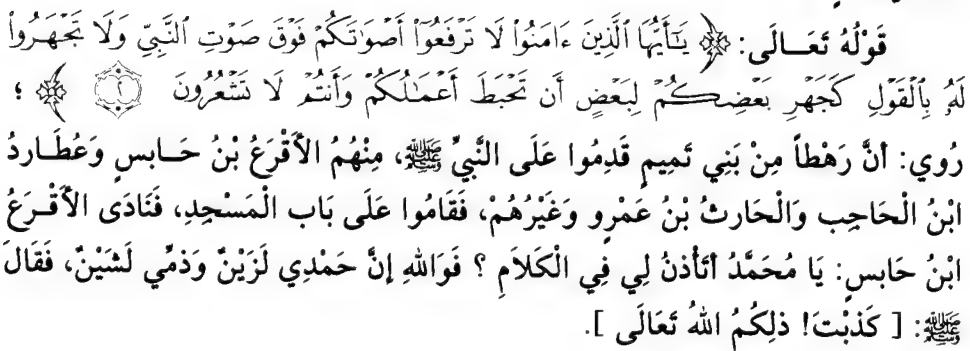 قَوْلُهُ تَعَـالَى: ﴿ يَـٰٓأَيُّهَا ٱلَّذِينَ ءَامَنُوا۟ لَا تَرْفَعُوٓا۟ أَصْوَٰتَكُمْ فَوْقَ صَوْتِ ٱلنَّبِيِّ وَلَا تَجْهَرُوا۟
لَهُۥ بِٱلْقَوْلِ كَجَهْرِ بَعْضِكُمْ لِبَعْضٍ أَن تَحْبَطَ أَعْمَـٰلُكُمْ وَأَنتُمْ لَا تَشْعُرُونَ ٢ ﴾ ؛
رُوي: أنَّ رَهْطاً مِنْ بَنِي تَمِيمٍ قَدِمُوا عَلَى النَّبِيِّ ﷺ، مِنْهُمُ الأَقْرَعُ بْنُ حَـابسٍ وَعُطَـاردُ
ابْنُ الْحَاجِب وَالْحَارثُ بْنُ عَمْرٍو وَغَيْرُهُمْ، فَقَامُوا عَلَى بَاب الْمَسْجِدِ، فَنَادَى الأَقْـرَعُ
ابْنُ حَابسٍ: يَا مُحَمَّدُ أتَأْذنُ لِي فِي الْكَلاَمِ ؟ فَوَاللهِ إنَّ حَمْدِي لَزَيْنٌ وَذمِّي لَشَيْنٌ، فَقَالَ
ﷺ: [ كَذبْتَ! ذلِكُمُ اللهُ تَعَالَى ].